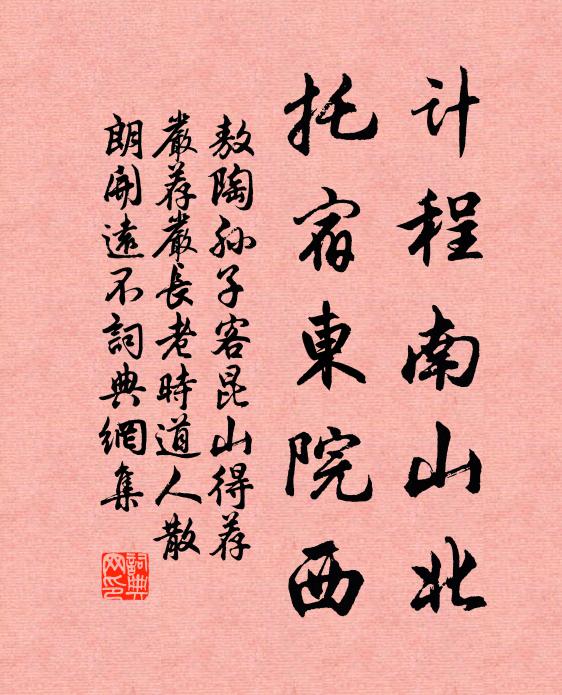 计程南山北
托宿東院西
敖陶孙子客昆山得荐
嚴荐嚴長老時道人散
朗開遠不詞典網集
詞典网印